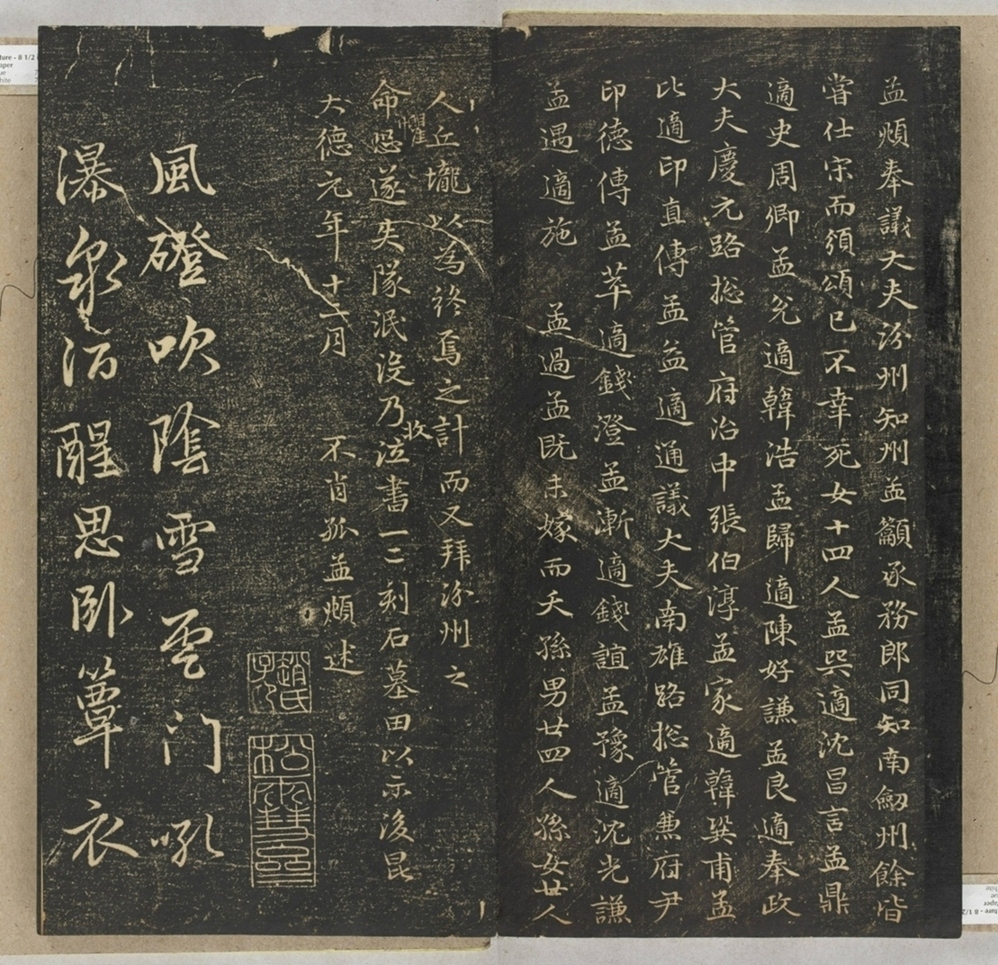 孟頫奉議大夫汾州知州孟籲承務郎同知南劒州餘皆
嘗仕宋而須頌已不幸死女十四人孟巽適沈昌言孟鼎
適史周卿孟兊適韓浩孟歸適陳好謙孟良適奉政
大夫慶元路捴管府治中張伯淳孟家適韓巽甫孟
比適印直傳孟益適通議大夫南雄路捴管兼府尹
印德傳孟萃適錢澄孟漸適錢誼孟豫適沈光謙
孟遇適施 孟過孟既未嫁而夭孫男廿四人孫女廿人
人丘壠以為終焉之計而又拜汾州之
命恐懼遂失隊泯沒乃抆泣書一二刻石墓田以示後昆
大德元年十二月 不肖孤孟頫述
趙氏子昂
松雪齋
風磴吹陰雪雲门吼
瀑泉酒醒思卧簟衣